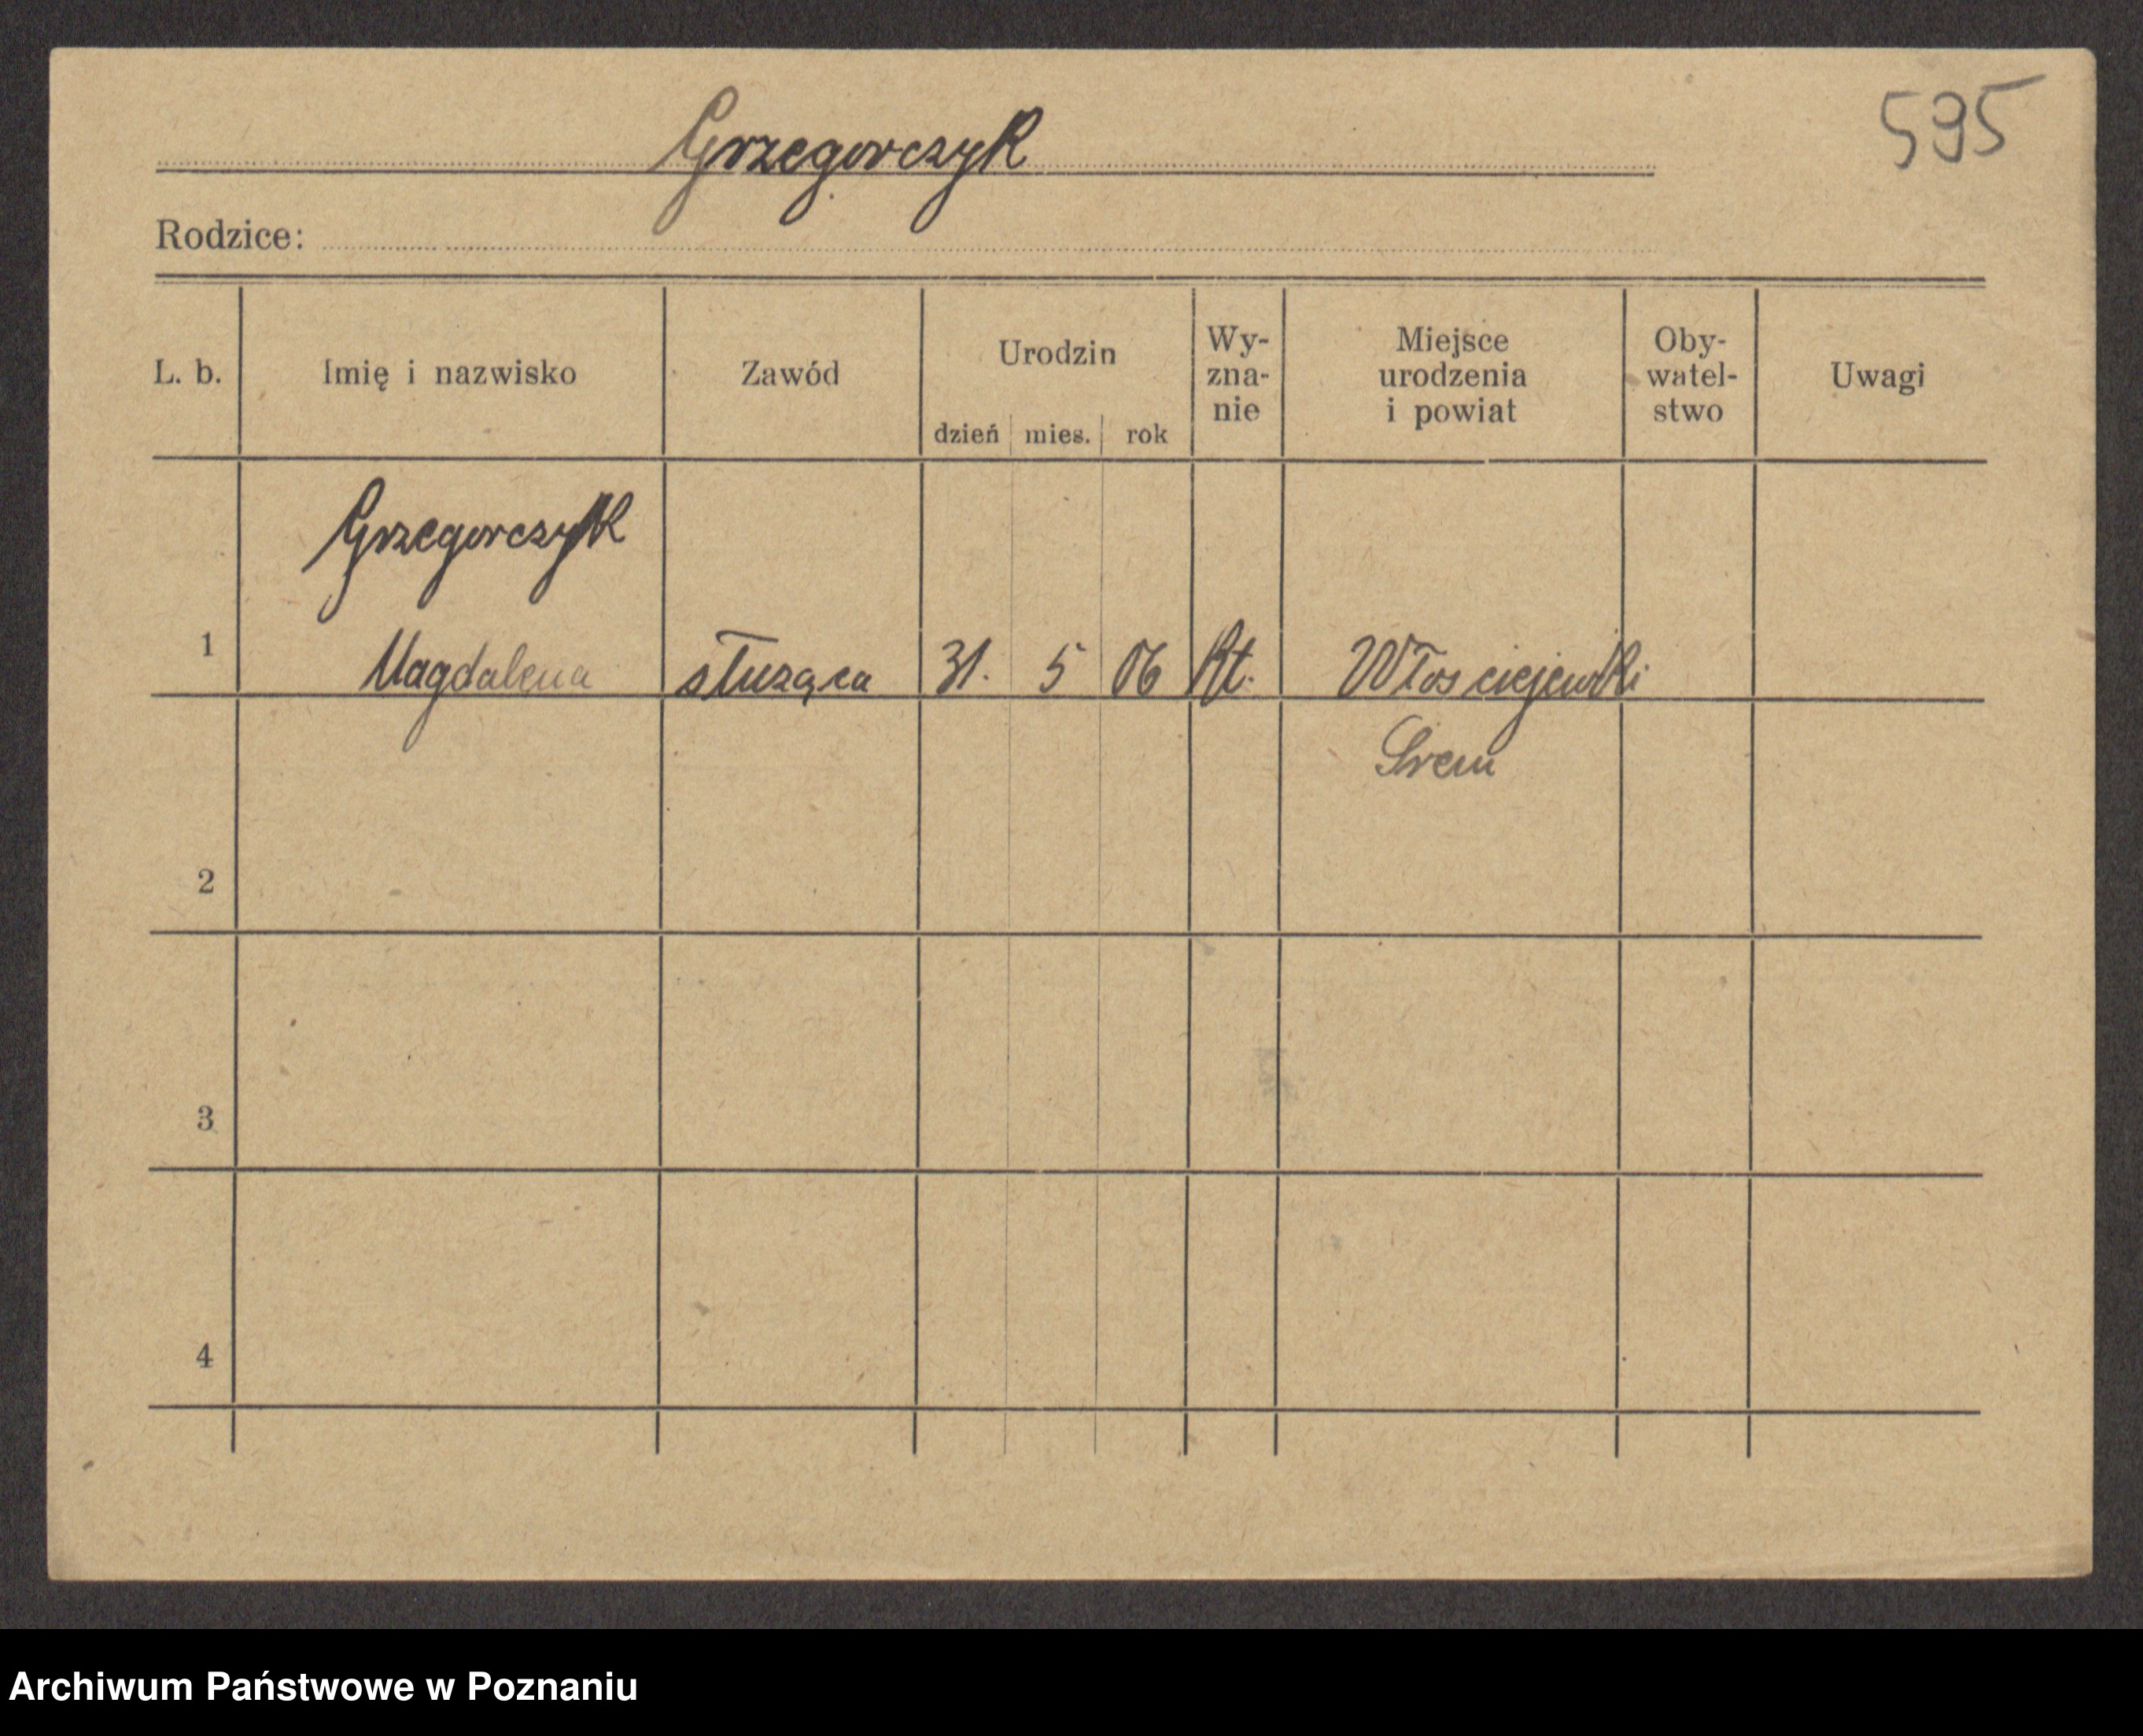 595
Grzegorczyk
Rodzice:
L. b. Imię i nazwisko Zawód Urodzin dzień mies. rok Wy-zna-nie Miejsce urodzenia i powiat Oby-watel-stwo Uwagi
Grzegorczyk
1 Magdalena służąca 31. 5 06 Rt. Włosciejewki
Srem
2
3
4
Archiwum Państwowe w Poznaniu